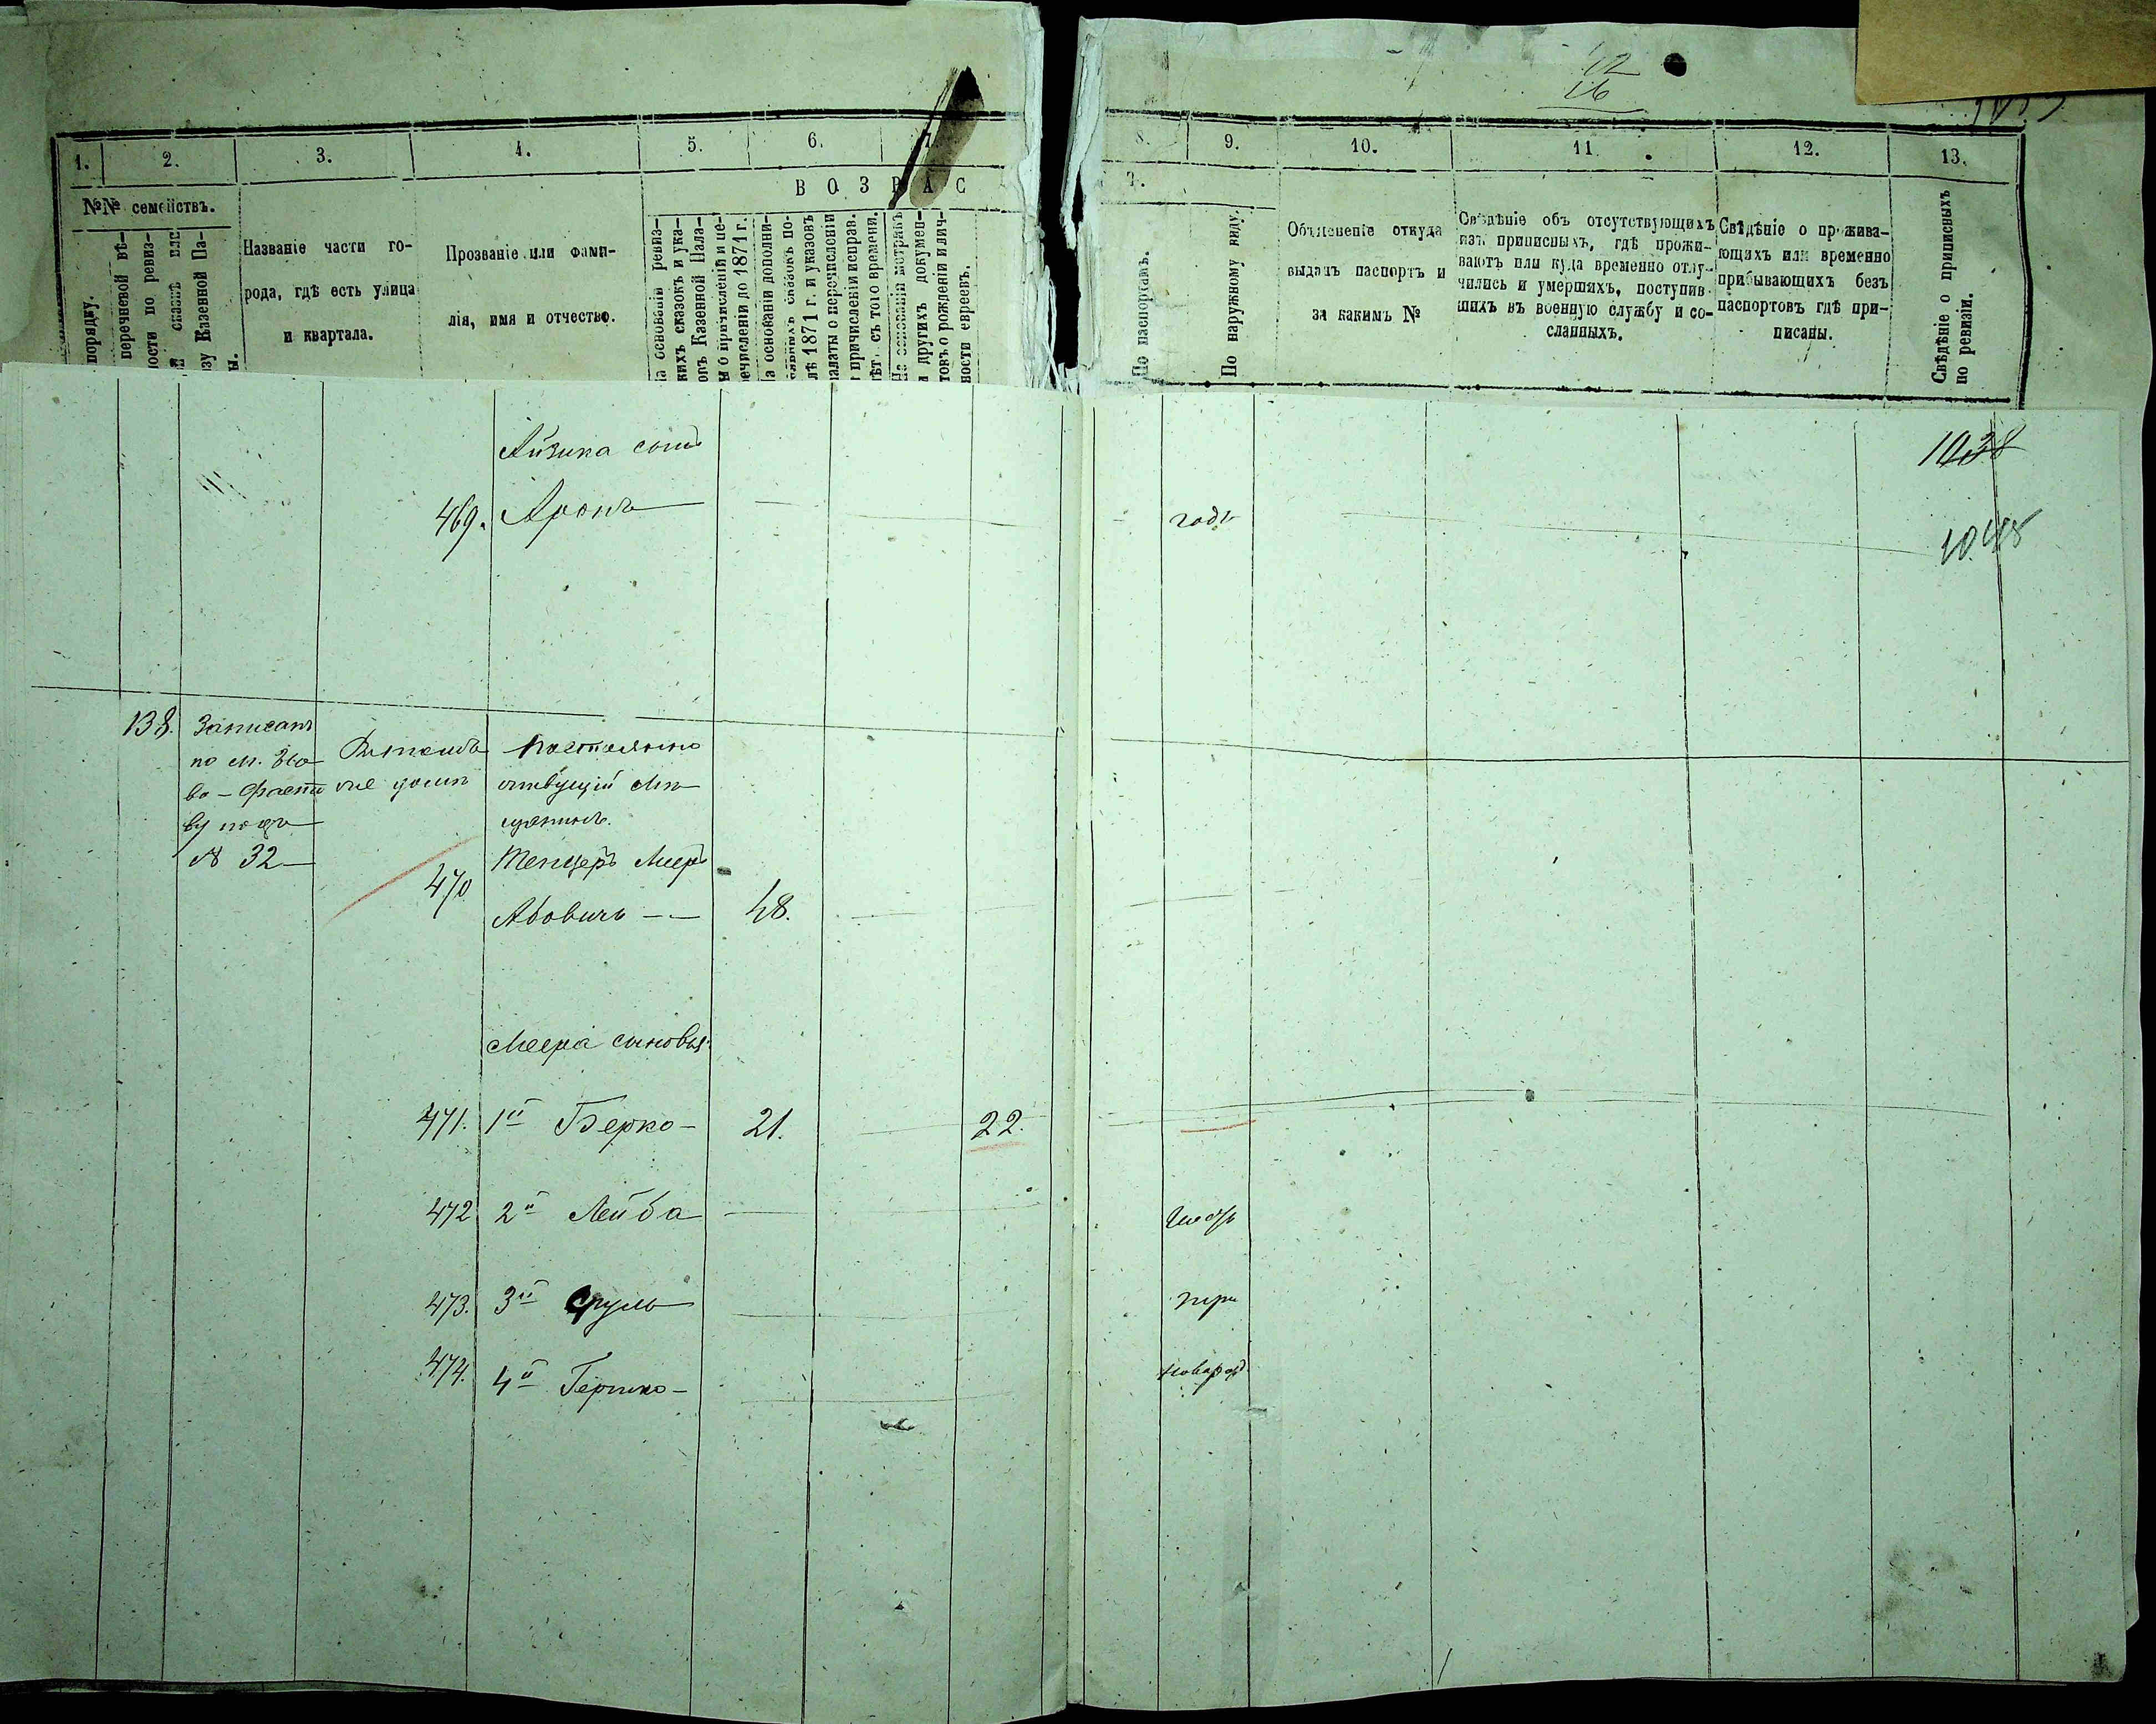 42
16
1. 2. 3. 4. 5. 6. 7.
8. 9. 10. 11. 12. 13.
ВОЗРАС
Т.
№№ семействъ.
порядку.
перечневой вѣ-
ности по ревиз-
й сказкѣ или
азу Казенной Па-
ы.
Названіе части го-
рода, гдѣ есть улица
и квартала.
Прозваніе или фами-
лія, имя и отчество.
На основаніи ревиз-
кихъ сказокъ и ука-
овъ Казенной Пала-
ы о причисленіи и пе-
речисленіи до 1871 г.
На основаніи дополни-
тельныхъ сказокъ по-
лѣ 1871 г. и указовъ
палаты о перечисленіи
и причисленіи исправ.
лѣт. съ того времени.
На основаніи метрикъ
и другихъ докумен-
товъ о рожденіи и лич-
ности евреевъ.
По паспортамъ.
По наружному виду.
Объясненіе откуда
выданъ паспортъ и
за какимъ №
Свѣдѣніе объ отсутствующихъ
изъ приписныхъ, гдѣ прожи-
ваютъ или куда временно отлу-
чились и умершихъ, поступив-
шихъ въ военную службу и со-
сланныхъ.
Свѣдѣніе о прожива-
ющихъ или временно
прибывающихъ безъ
паспортовъ гдѣ при-
писаны.
Свѣдѣніе о приписныхъ
по ревизіи.
Айзика сынъ
1038
469. Аронъ годъ
1048
138. Записанъ
по м.
ву подъ
№ 32
Постоянно
отсвующій Мѣ-
щанинъ.
470 Тенцеръ Меер
Абовичъ 48.
Меера сыновья:
471. 1й Берко 21. 22.
472 2й Лейба шесть
473. 3й Сруль три
474. 4й Гершко новорожд.